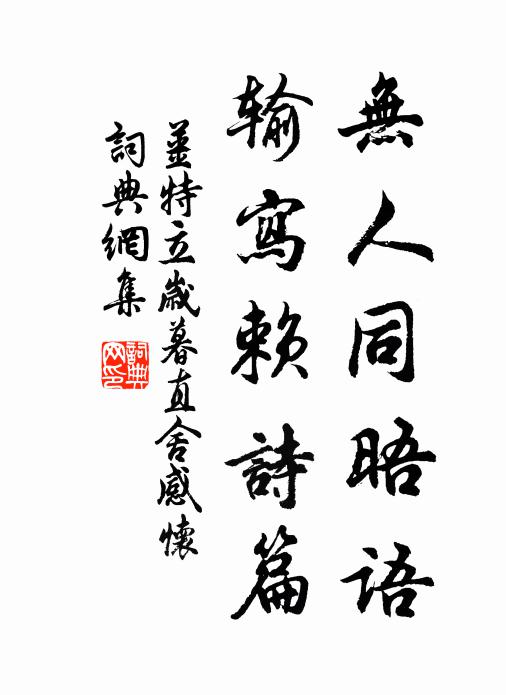 無人同晤語
輸寫賴詩篇
姜特立歲暮直舍感懷
詞典網集
詞典
网印